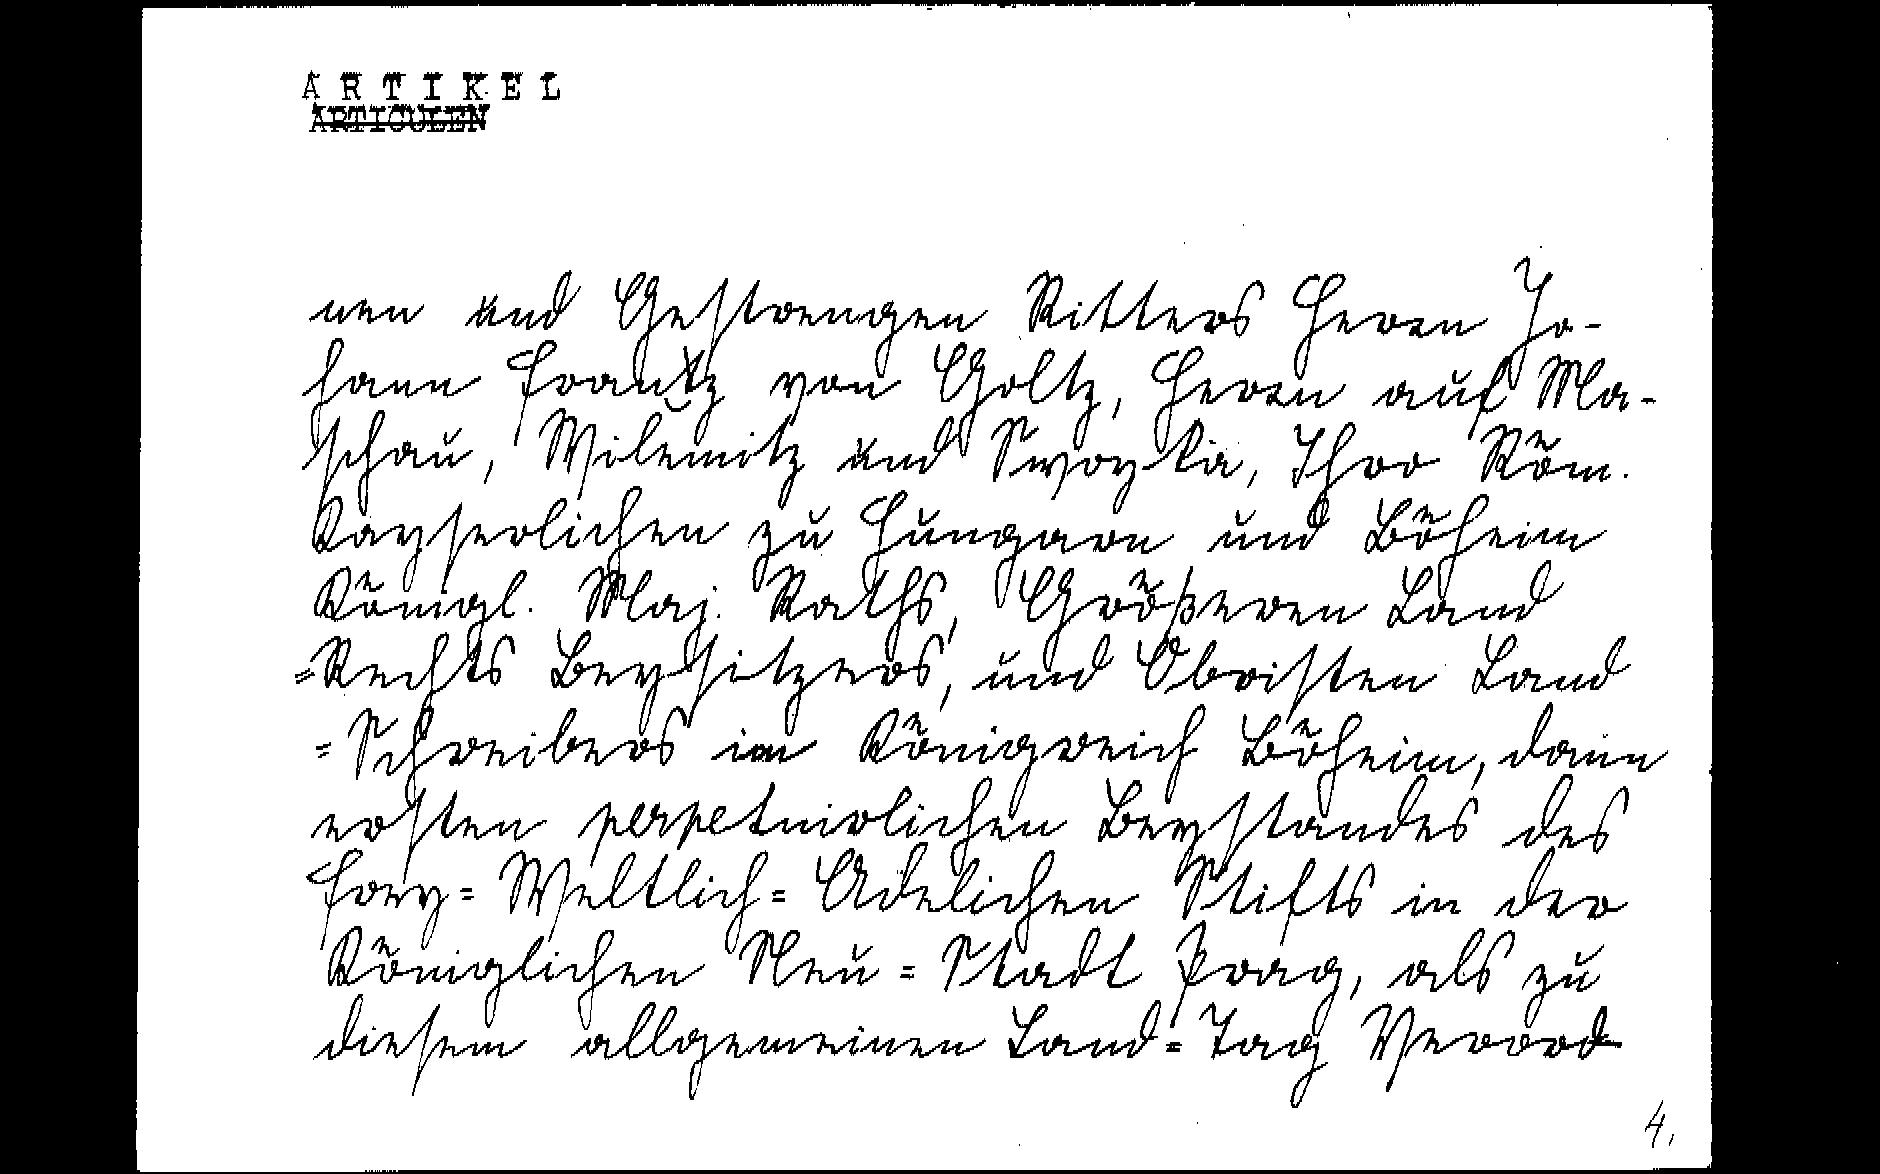 ARTIKEL
ARTICULEN
nen und Gestrengen Ritters Herrn Jo-
hann Frantz von Goltz, Herrn auf Ma-
schau, Wilemitz und Swoyka, Ihro Röm.
Kayserlichen zu Hungarn und Böheim
Königl. Maj. Raths, Größeren Land
=Rechts Beysitzers, und Obristen Land
=Schreibers im Königreich Böheim, dann
ersten perpetuirlichen Beystandes des
Frey=Weltlich=Adelichen Stifts in der
Königlichen Neu=Stadt Prag, als zu
diesem allgemeinen Land=Tag Verord
4.